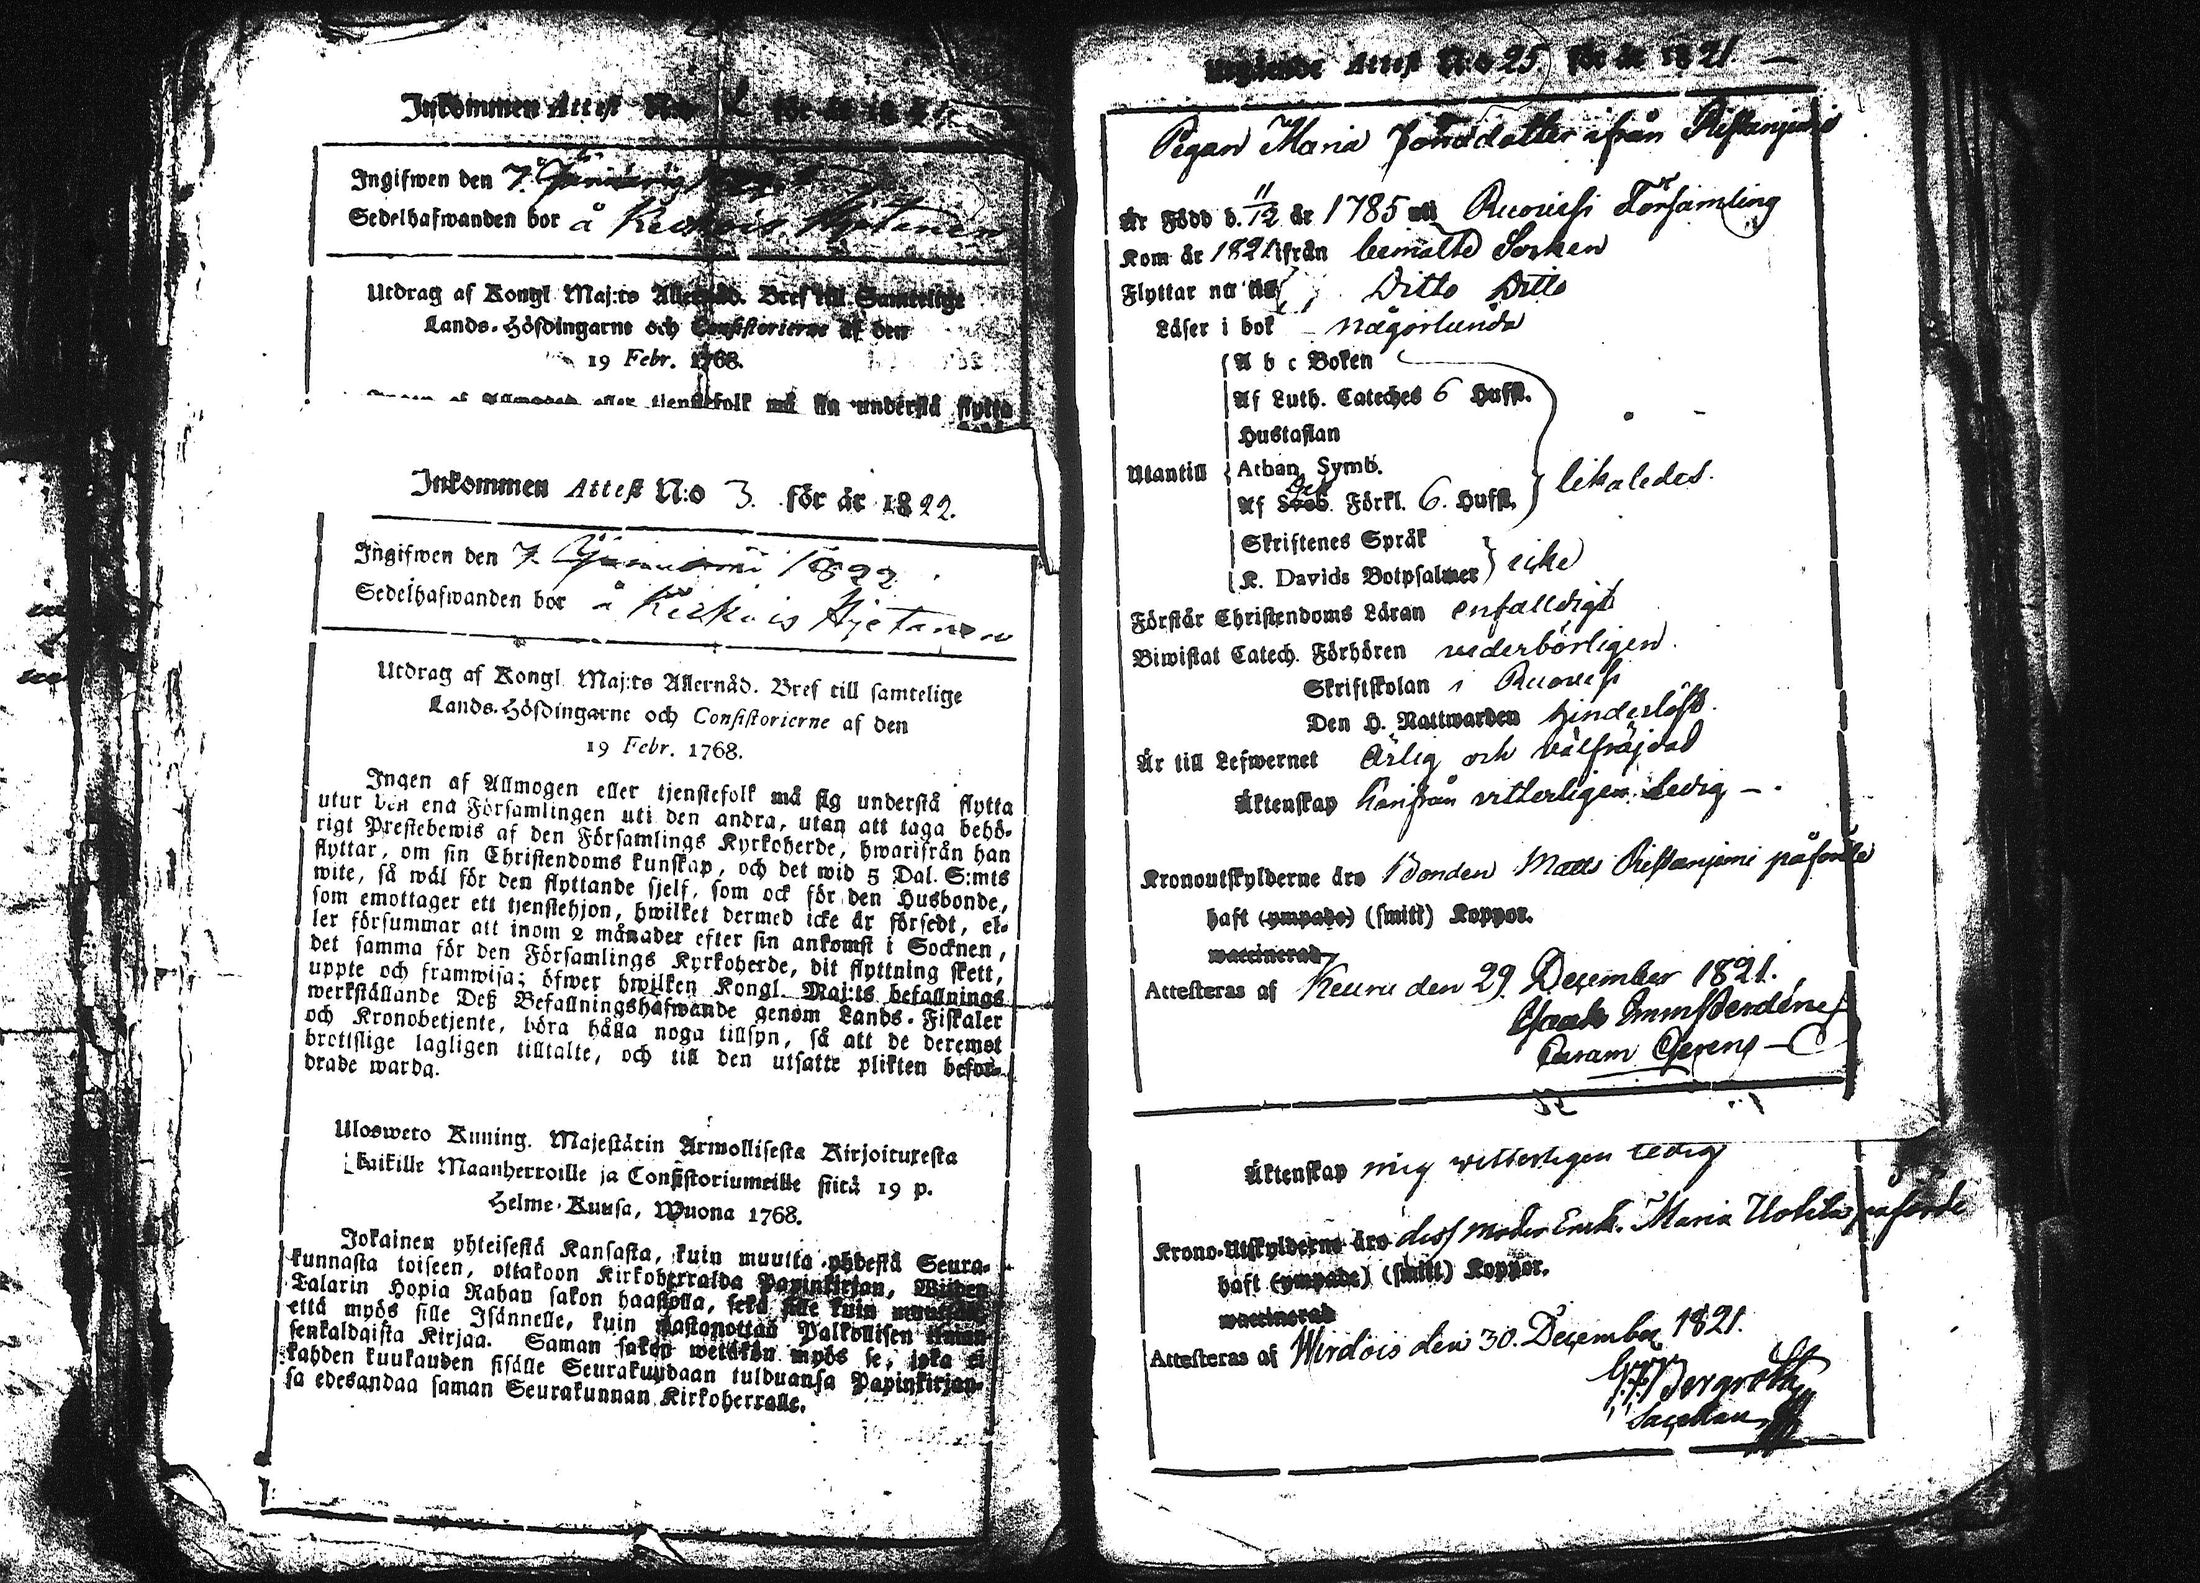 Inkommen Attest N:o 2 för år 18
Ingifwen den 7. Januarii
Sedelhafwanden bor å Keckois Hjetanen
Utdrag af Kongl Maj:ts Allernåd. Bref till Samtelige
Lands-Höfdingarne och Consistorierne af den
19 Febr. 1768.
Ingen af Allmogen eller tjenstefolk må sig understå flytta
Inkommen Attest N:o 3. för år 1822.
Ingifwen den 7. Januarii 1822.
Sedelhafwanden bor å Keckois Hjetanen
Utdrag af Kongl. Maj:ts Allernåd. Bref till samtelige
Lands-Höfdingarne och Consistorierne af den
19 Febr. 1768.
Ingen af Allmogen eller tjenstefolk må sig understå flytta
utur den ena Församlingen uti den andra, utan att taga behö-
rigt Prestebewis af den Församlings Kyrkoherde, hwarifrån han
flyttar, om sin Christendoms kunskap, och det wid 5 Dal. S:mts
wite, så wäl för den flyttande sjelf, som ock för den Husbonde,
som emottager ett tjenstehjon, hwilket dermed icke är försedt, el-
ler försummar att inom 2 månader efter sin ankomst i Socknen,
det samma för den Församlings Kyrkoherde, dit flyttning skett,
uppte och framwisa; öfwer hwilken Kongl. Maj:ts befallnings
werkställande Deß Befallningshafwande genom Lands-Fiskaler
och Kronobetjente, böra hålla noga tillsyn, så att de deremot
brottslige lagligen tilltalte, och till den utsatte plikten befor-
drade warda.
Uloswето Kuning. Majestätin Armollisesta Kirjoituxesta
kaikille Maanherroille ja Consistoriumeille siitä 19 p.
Helme-Kuusa, Wuona 1768.
Jokainen yhteisestä Kansasta, kuin muutta yhdestä Seura-
kunnasta toiseen, ottakoon Kirkoherralda Papinkirjan, Wiiden
Talarin Hopia Rahan sakon haastolla, sekä sille kuin muuttaa
että myös sille Isännelle, kuin wastanottaa Palkollisen ilman
senkaldaista Kirjaa. Saman sakon wetäkön myös se, joka ei
kahden kuukauden sisälle Seurakundaan tulduansa Papinkirjan-
sa edesandaa saman Seurakunnan Kirkoherralle.
Utgående Attest N:o 25 för år 1821 —
Pigan Maria Jonædotter ifrån Ristanjemi
Är Född d. 11/12 år 1785 uti Ruowesi Församling
Kom år 1821 ifrån bemälte Socken
Flyttar nu till Ditto Ditto
Läser i bok någorlunda
Utantill
A b c Boken
Af Luth. Cateches 6 Hufst.
Hustaflan
Athan. Symb.
Af Sveb. Förkl. 6. Hufst. likaledes.
Skriftenes Språk
K. Davids Botpsalmer icke
Förstår Christendoms Läran enfalldigt
Biwistat Catech. Förhören wederbörligen.
Skriftskolan i Ruowesi
Den H. Nattwarden hinderlöst.
Är till Lefwernet Ärlig och Välfräjdad
Äktenskap härifrån vitterligen Ledig —.
Kronoutskylderne äro Bonden Matts Ristanjemi påförde
haft (ympade) (smitt) Koppor.
waccinerad
Attesteras af Keuru den 29. December 1821.
Äktenskap mig vitterligen ledig
Krono-Utskylderne äro dess moder Enck. Maria Uotila påförde
haft (ympade) (smitt) Koppor.
waccinerad
Attesteras af Wirdois den 30. December 1821.
Bergroth
Sacellan